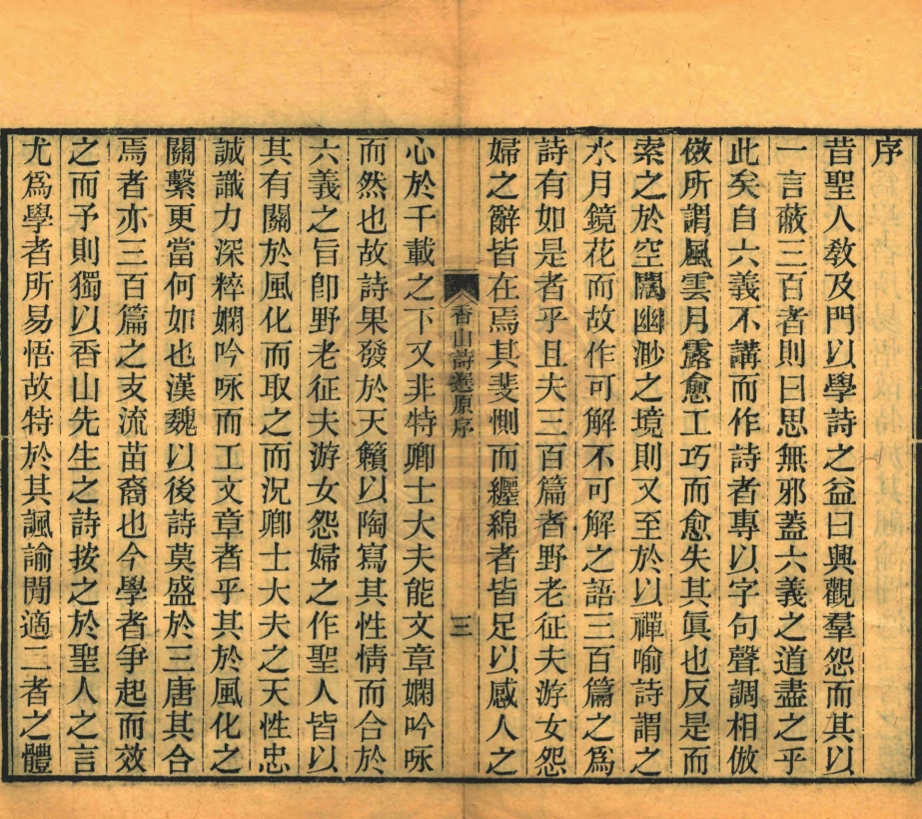 序
昔聖人敎及門以學詩之益曰興觀羣怨而其以
一言蔽三百者則曰思無邪蓋六義之道盡之乎
此矣自六義不講而作詩者專以字句聲調相倣
傚所謂風雲月露愈工巧而愈失其眞也反是而
索之於空闊幽渺之境則又至於以禪喻詩謂之
水月鏡花而故作可解不可解之語三百篇之爲
詩有如是者乎且夫三百篇者野老征夫游女怨
婦之辭皆在焉其斐惻而纏綿者皆足以感人之
香山詩選原序
三
心於千載之下又非特卿士大夫能文章嫻吟咏
而然也故詩果發於天籟以陶寫其性情而合於
六義之旨卽野老征夫游女怨婦之作聖人皆以
其有關於風化而取之而況卿士大夫之天性忠
誠識力深粹嫻吟咏而工文章者乎其於風化之
關繫更當何如也漢魏以後詩莫盛於三唐其合
焉者亦三百篇之支流苗裔也今學者爭起而效
之而予則獨以香山先生之詩按之於聖人之言
尤爲學者所易悟故特於其諷諭閒適二者之體